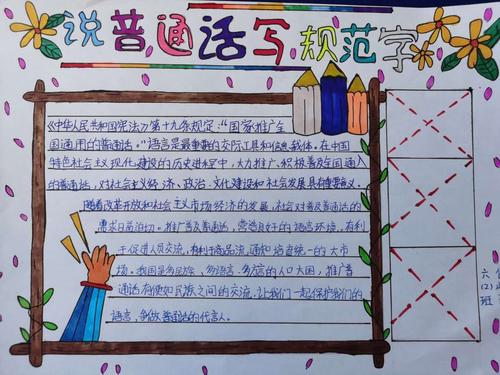 说普通话写规范字
《中华人民共和国宪法》第十九条规定:“国家推广全
国通用的普通话。”语言是最重要的交际工具和信息载体。在中国
特色社会主义现化建设的历史进程中,大力推广、积极普及全国通
的普通话,对社会主义经济、政治、文化建设和社会发展具有重要意义。
随着改革开放和社会主义市场经济的发展,社会对普及普通话的
需求日益迫切。推广普及普通话,营造良好的语言环境,有利
于促进人员交流,有利于商品流通和培育统一的大市
场。我国是多民族、多语言、多方言的人口大国,推广普
通话有便如民族之间的交流,让我们一起保护我们的
语言,争做普通话的代言人。
六
(2)
班